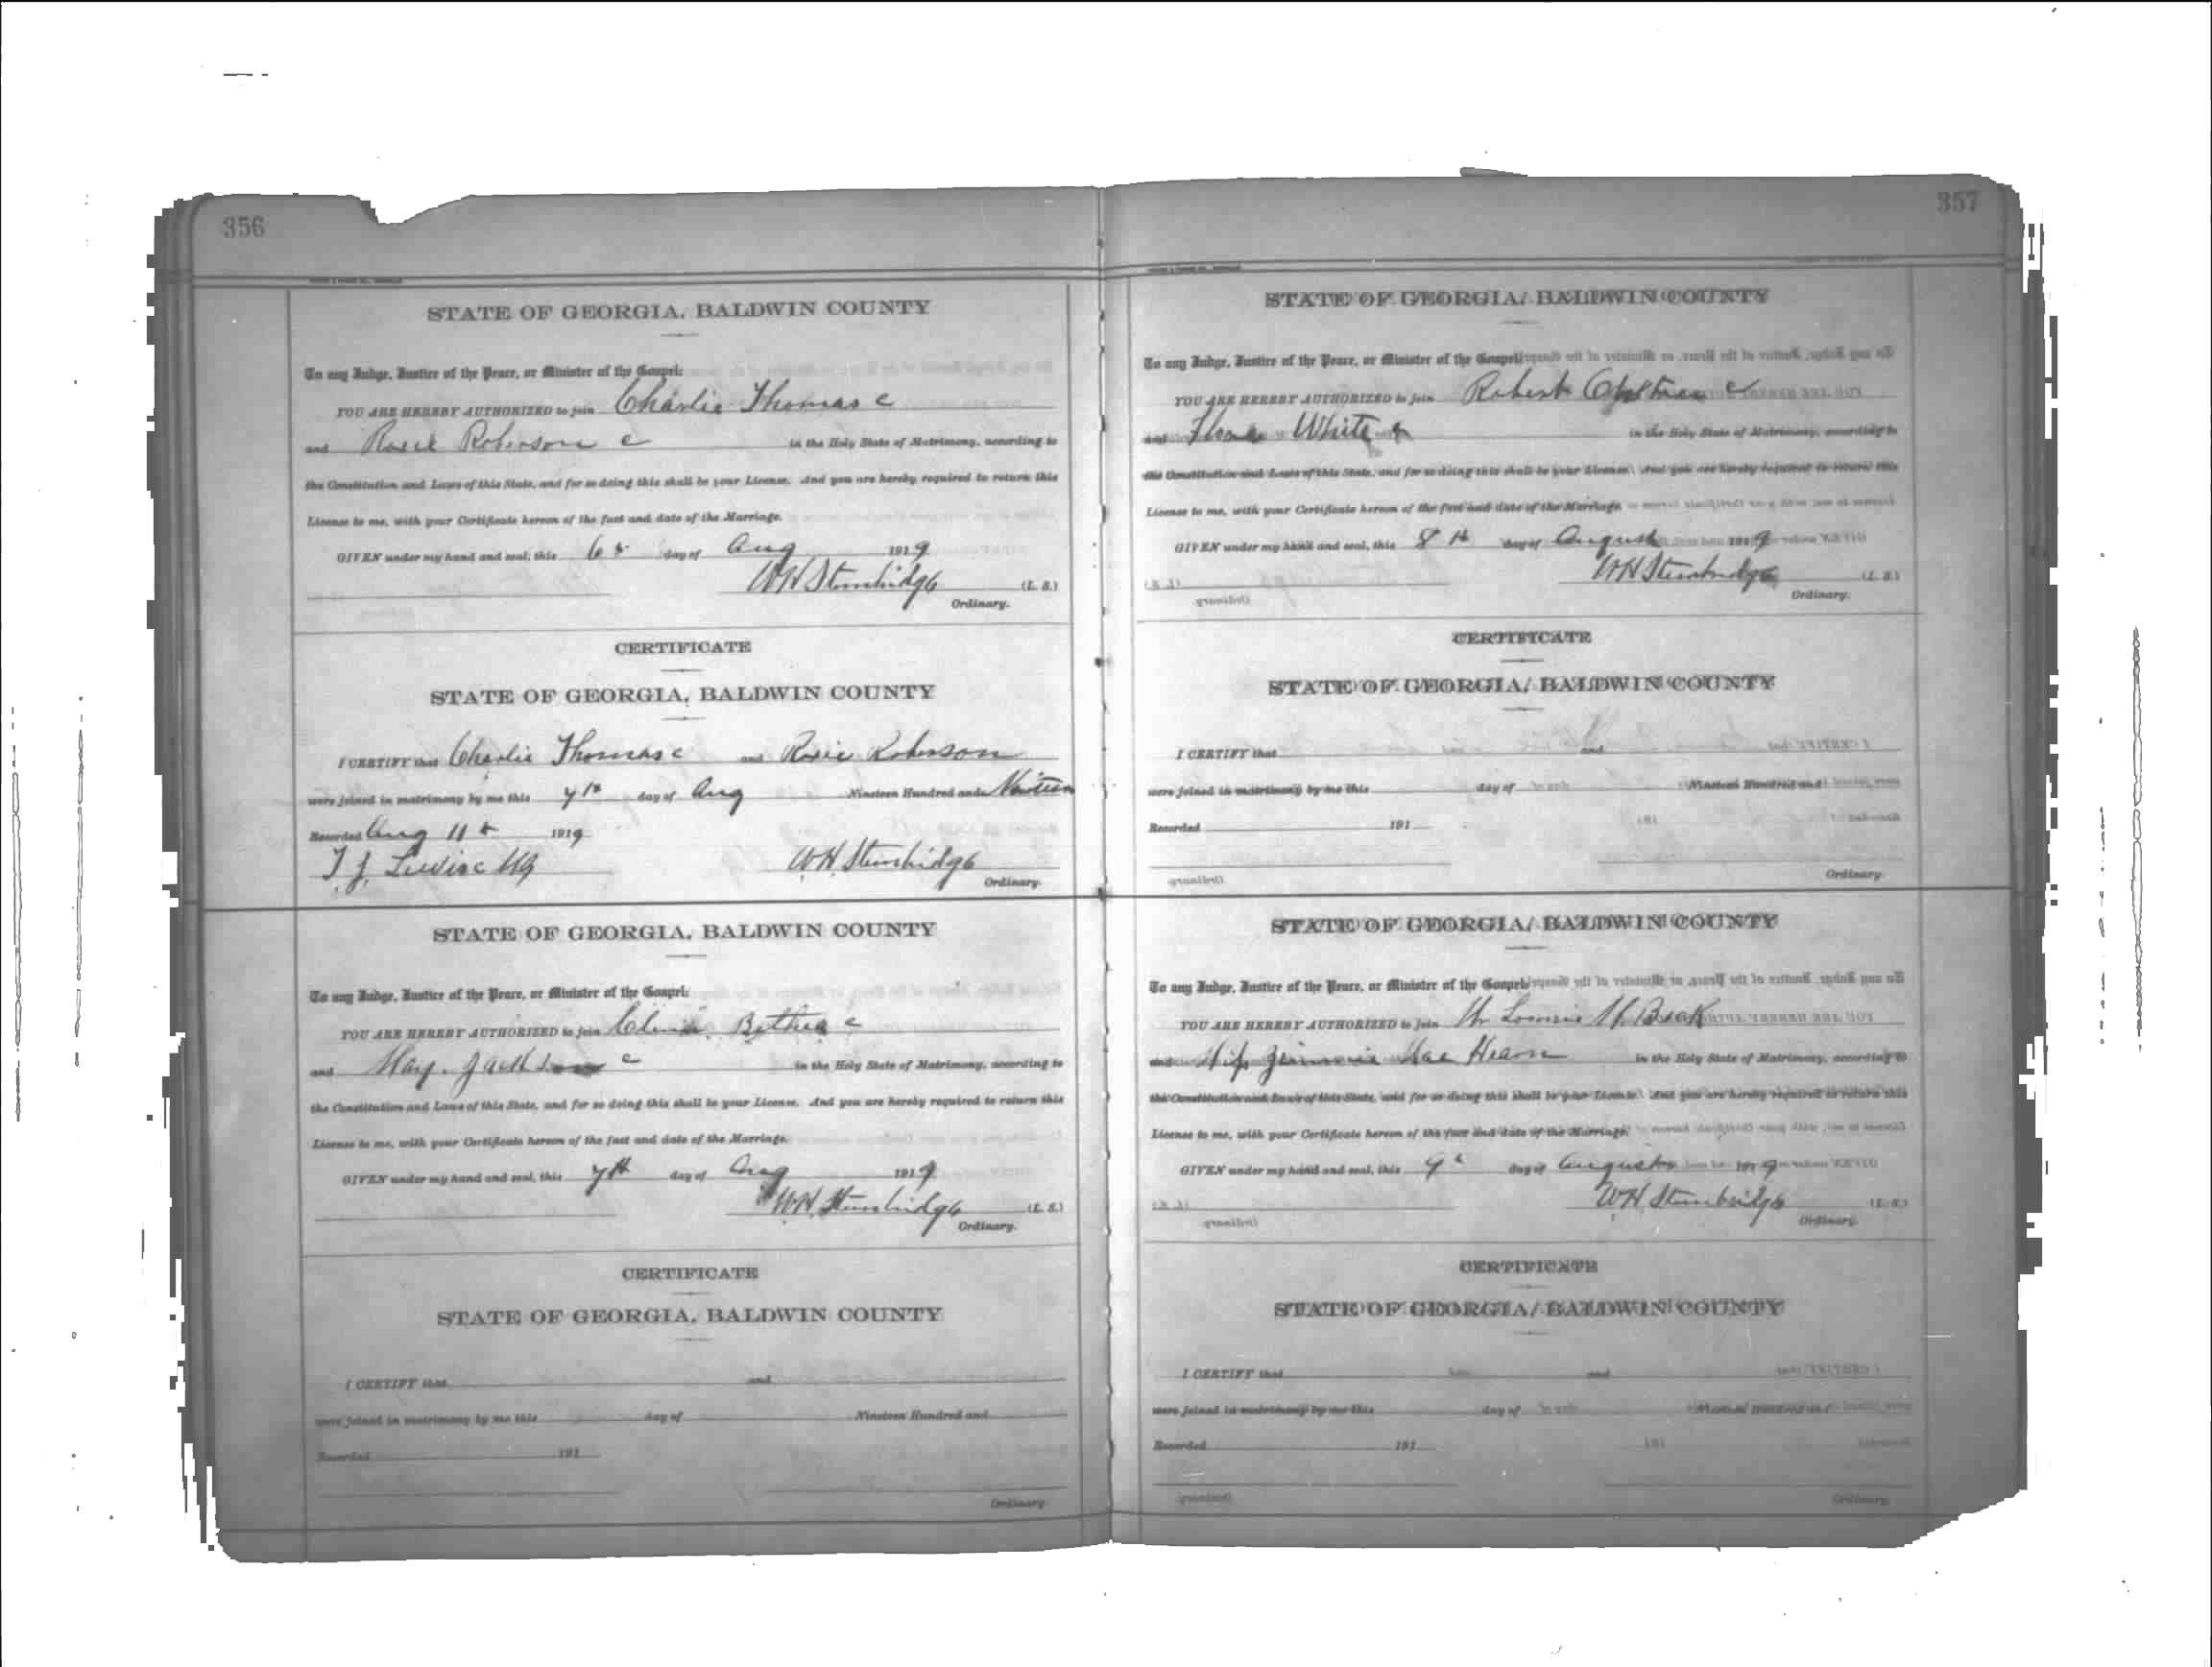 356
STATE OF GEORGIA, BALDWIN COUNTY
To any Judge, Justice of the Peace, or Minister of the Gospel:
YOU ARE HEREBY AUTHORIZED to join Charlie Thomas c
and Rosie Robinson c in the Holy State of Matrimony, according to
the Constitution and Laws of this State, and for so doing this shall be your License. And you are hereby required to return this
License to me, with your Certificate hereon of the fact and date of the Marriage.
GIVEN under my hand and seal, this 6 day of Aug 1919
WH Stembridge (L. S.)
Ordinary.
CERTIFICATE
STATE OF GEORGIA, BALDWIN COUNTY
I CERTIFY that Charlie Thomas c and Rosie Robinson
were joined in matrimony by me this 7th day of Aug Nineteen Hundred and Nineteen
Recorded Aug 11 1919
T. J. WH Stembridge
Ordinary
STATE OF GEORGIA, BALDWIN COUNTY
To any Judge, Justice of the Peace, or Minister of the Gospel:
YOU ARE HEREBY AUTHORIZED to join Bethea c
and Mary Jackson c in the Holy State of Matrimony, according to
the Constitution and Laws of this State, and for so doing this shall be your License. And you are hereby required to return this
License to me, with your Certificate hereon of the fact and date of the Marriage.
GIVEN under my hand and seal, this 7th day of Aug 1919
WH Stembridge (L. S.)
Ordinary.
CERTIFICATE
STATE OF GEORGIA, BALDWIN COUNTY
I CERTIFY that and
were joined in matrimony by me this day of Nineteen Hundred and
Recorded 191
Ordinary
357
STATE OF GEORGIA, BALDWIN COUNTY
To any Judge, Justice of the Peace, or Minister of the Gospel:
YOU ARE HEREBY AUTHORIZED to join Robert c
and White c in the Holy State of Matrimony, according to
the Constitution and Laws of this State, and for so doing this shall be your License. And you are hereby required to return this
License to me, with your Certificate hereon of the fact and date of the Marriage.
GIVEN under my hand and seal, this 8th day of August 1919
WH Stembridge (L. S.)
Ordinary.
CERTIFICATE
STATE OF GEORGIA, BALDWIN COUNTY
I CERTIFY that and
were joined in matrimony by me this day of Nineteen Hundred and
Recorded 191
Ordinary
STATE OF GEORGIA, BALDWIN COUNTY
To any Judge, Justice of the Peace, or Minister of the Gospel:
YOU ARE HEREBY AUTHORIZED to join Mr Lonnie
and Miss Jimmie Mae Hearn in the Holy State of Matrimony, according to
the Constitution and Laws of this State, and for so doing this shall be your License. And you are hereby required to return this
License to me, with your Certificate hereon of the fact and date of the Marriage.
GIVEN under my hand and seal, this 9 day of August 1919
WH Stembridge (L. S.)
Ordinary.
CERTIFICATE
STATE OF GEORGIA, BALDWIN COUNTY
I CERTIFY that and
were joined in matrimony by me this day of Nineteen Hundred and
Recorded 191
Ordinary